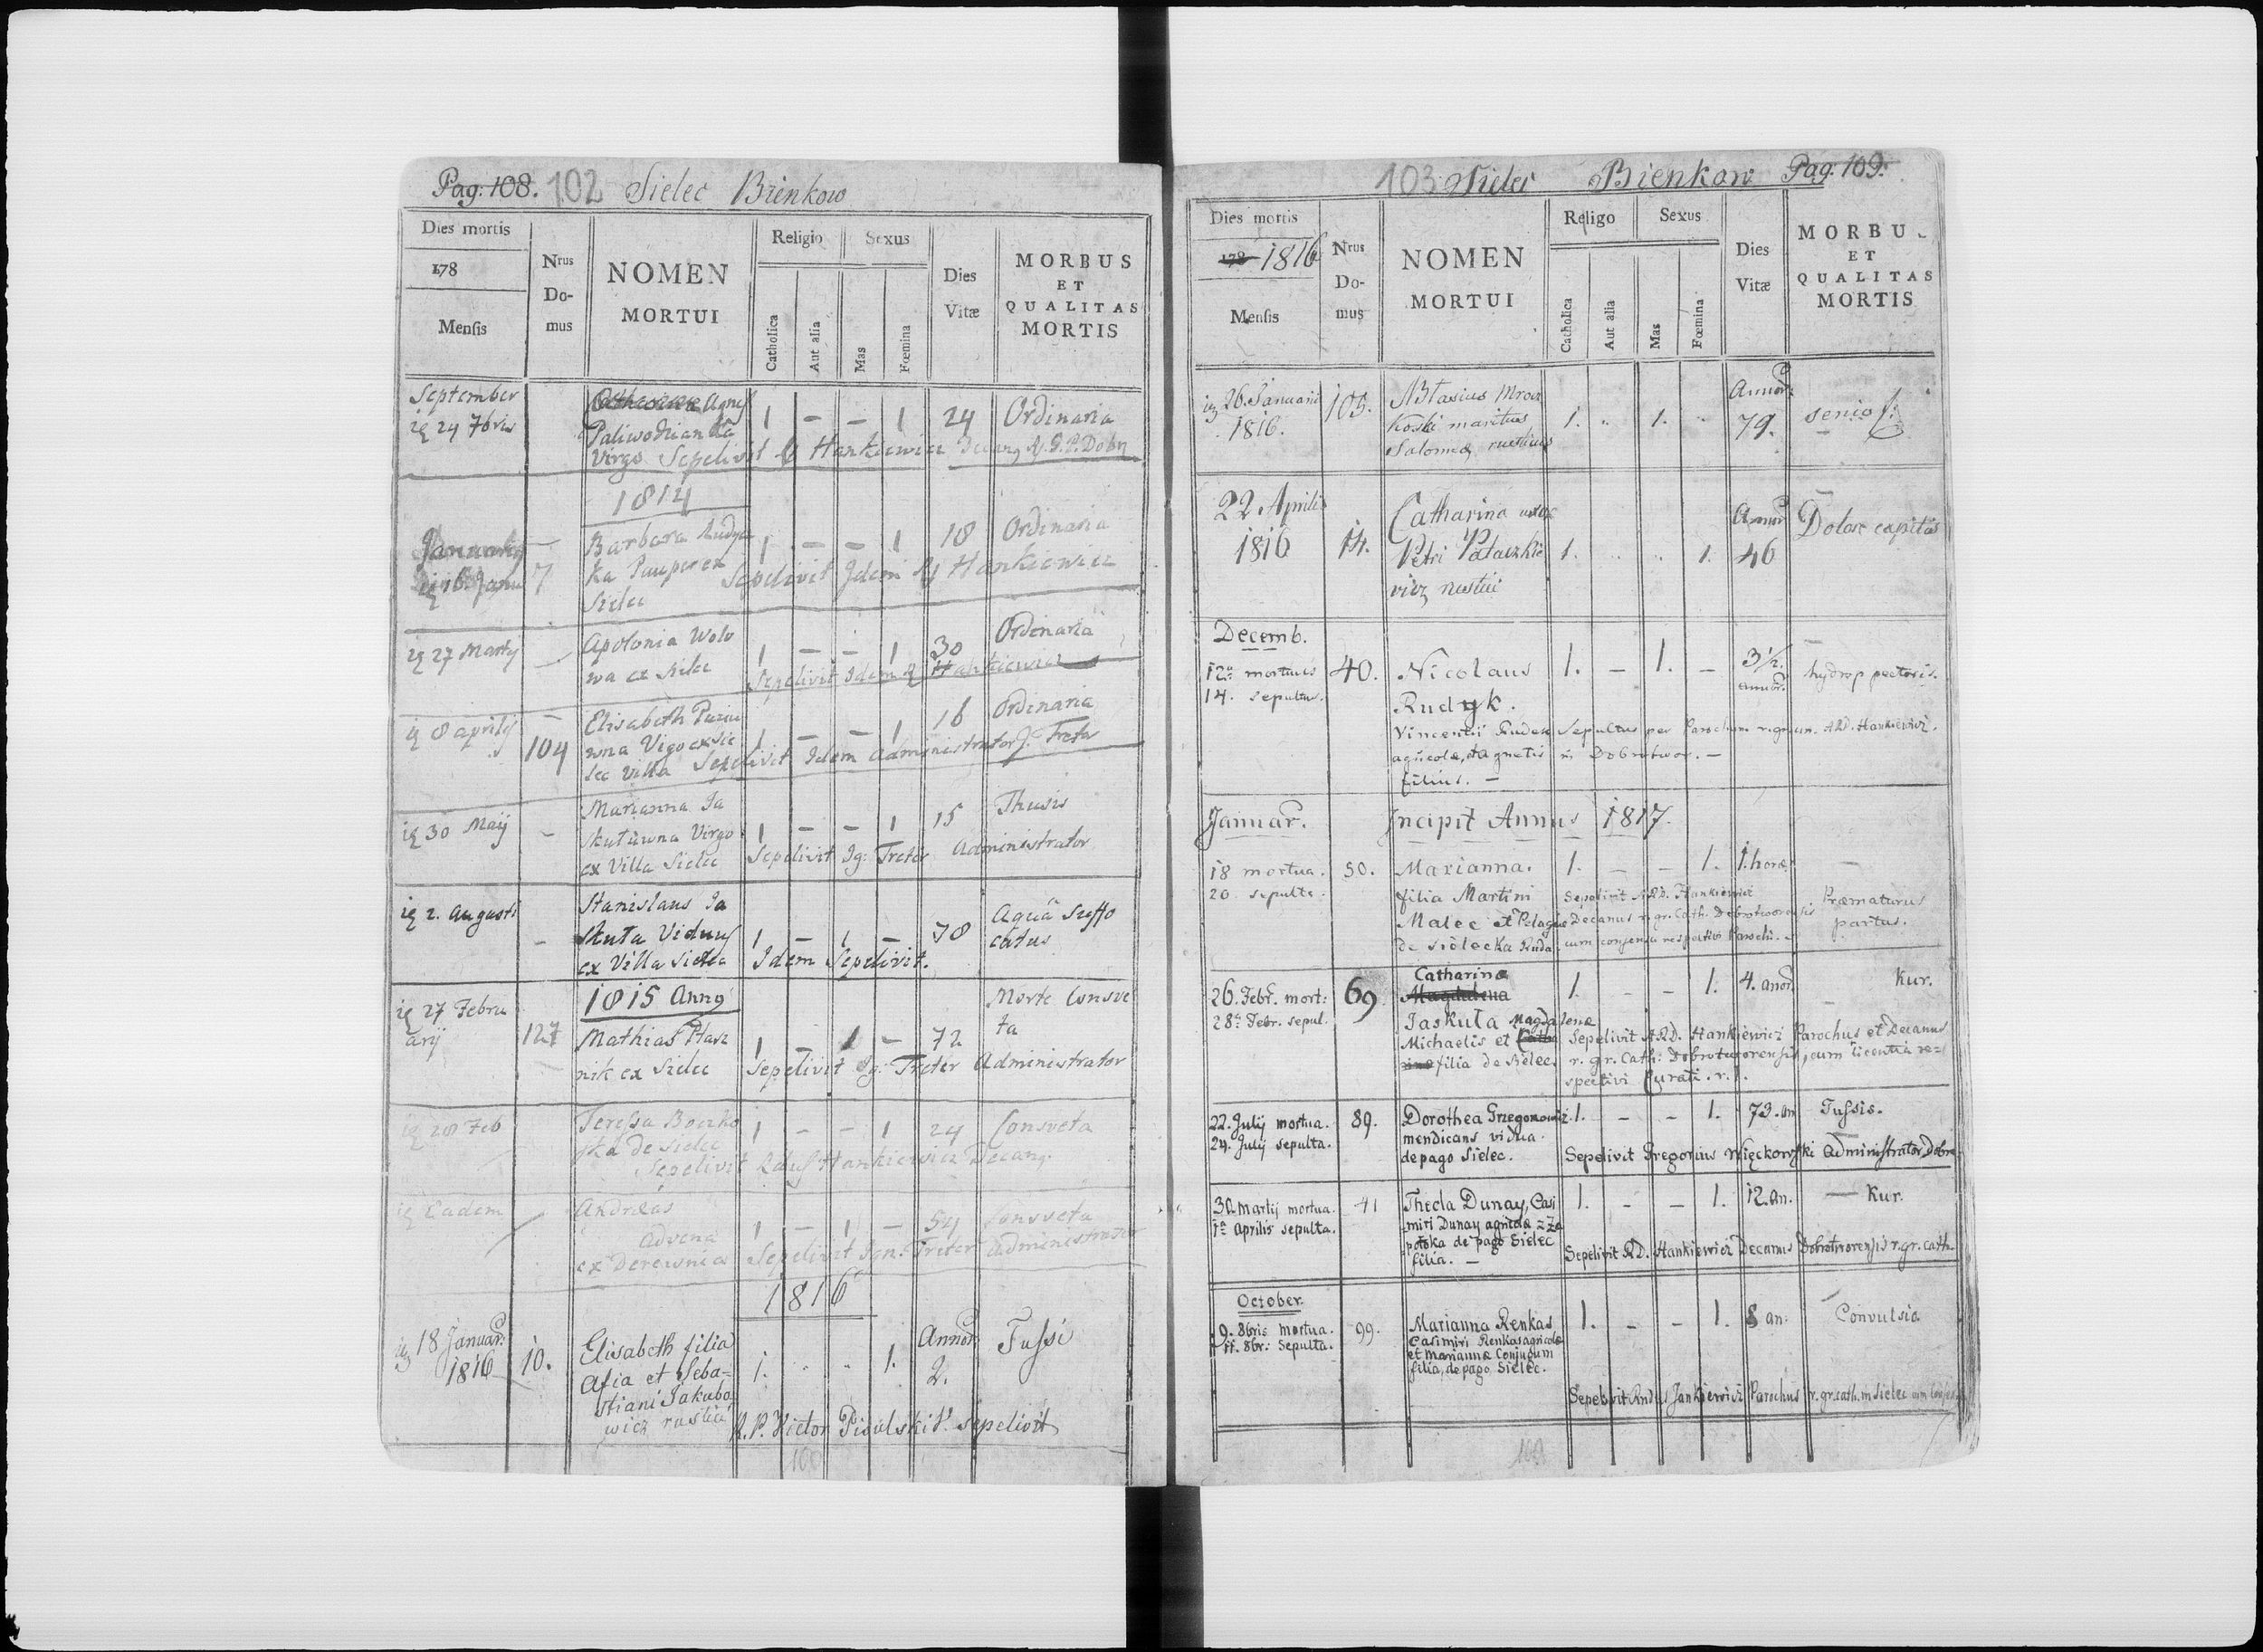 Pag: 108. 102 Sielec Bienkow
Dies mortis
178
Mensis
Nrus Do-mus
NOMEN
MORTUI
Religio
Catholica
Aut alia
Sexus
Mas
Fœmina
Dies
Vitæ
MORBUS
ET
QUALITAS
MORTIS
September
24 7bris
Agnes
Paliwodzianka 1 - - 1 24 Ordinaria
Virgo Sepelivit Hankiewicz
1814
16 Janu 7
Barbara Rudyc
ka Pauper ex 1 - - 1 18 Ordinaria
Sielec Sepelivit Idem Hankiewicz
27 Martij
Apolonia Wolo
wa ex Sielec 1 - - 1 30 Ordinaria
Sepelivit Idem Hankiewicz
8 aprilij 104
Elisabeth
wna ex Sie
lec Villa 1 - - 1 16 Ordinaria
Sepelivit Idem Administrator J. Treter
30 Maij -
Marianna Ja
skutuwna Virgo 1 - - 1 15 Thusis
ex Villa Sielec Sepelivit Ig: Treter Administrator
2. Augusti -
Stanislaus Ja
skuta Viduus 1 - 1 - 70 Aquâ Suffo
catus
ex Villa Sielec Idem Sepelivit.
1815 Anno
27 Febru
arij 127
Mathias Ptasz
nik ex Sielec 1 - 1 - 72 Morte Consve
ta
Sepelivit Ig: Treter Administrator
28 Feb
Teressa Boczko
ska de Sielec 1 - - 1 24 Consveta
Sepelivit Hankiewicz Decang
Eadem
Andreas
Advena 1 - 1 - 54 Consveta
ex Derewnia Sepelivit Ign: Treter Administrator
1816
18 Januar:
1816 10.
Elisabeth filia
Afia et Seba=
stiani Jakubo
wicz rustici 1. 1. Annor: 2. Tussi
R.P. Victor sepelivit
100
103 Sielec Bienkow Pag: 109.
Dies mortis
178 1816
Mensis
Nrus Do-mus
NOMEN
MORTUI
Religo
Catholica
Aut alia
Sexus
Mas
Fœmina
Dies
Vitæ
MORBU
ET
QUALITAS
MORTIS
26. Januarii
1816. 105.
Blasius Mrocz
koski maritus
Salomeæ rusticus 1. 1. Annor: 79. senio
22 Aprilis
1816 14.
Catharina uxor
Petri Palaszkie
vicz rustici 1. 1. Annor 46 Dolor capitis
Decemb.
12a mortuus 40.
14. sepultus.
Nicolaus 1. - 1. - 3 1/2. annor. hydrop pectoris.
Rudyk.
Vincentii Rudek Sepultus per Parochum r.gr.un. ARD. Hankiewicz.
agricolæ, et Agnetis in Dobrotwor. -
filius. -
Januar. Incipit Annus 1817.
18 mortua. 50. Marianna. 1. - - 1. 1. horæ -
20 sepulta. filia Martini Sepelivit ARD. Hankiewicz
Malec et Pelagiæ Decanus r.gr.Cath. Dobrotworensis Præmaturus
de Sielecka Ruda cum consensu respectivi Parochi. partus.
26. Febr. mort: 69 Catharina
28a Febr. sepul. Magdalena 1. - - 1. 4. anor. Kur.
Jaskuta Magdalenæ
Michaelis et Catha Sepelivit ARD. Hankiewicz Parochus et Decanus
rinæ filia de Sielec. r. gr. Cath: Dobrotworensis, cum licentia re=
spectivi Curati. r.l.
22. Julij mortua. 89. Dorothea Grzegorowicz 1. - - 1. 73. an Tussis.
24. Julij sepulta. mendicans vidua.
de pago Sielec. Sepelivit Gregorius Więckowski Administrator Dobro
30. Martij mortua. 41 Thecla Dunay, Casi 1. - - 1. 12. an. Kur.
1a Aprilis sepulta. miri Dunay agricolæ = Za
potoka de pago Sielec
filia. - Sepelivit RD. Hankiewicz Decanus Dobrotworensis r.gr.cath.
October.
9. 8bris mortua. 99. Marianna Renkas 1. - - 1. 8 an: Convulsio
11. 8br: Sepulta. Casimiri Renkas agricolæ
et Mariannæ Conjugum
filia, de pago Sielec.
Sepelivit Rndus Jankiewicz Parochus r.gr.cath. in Sielec